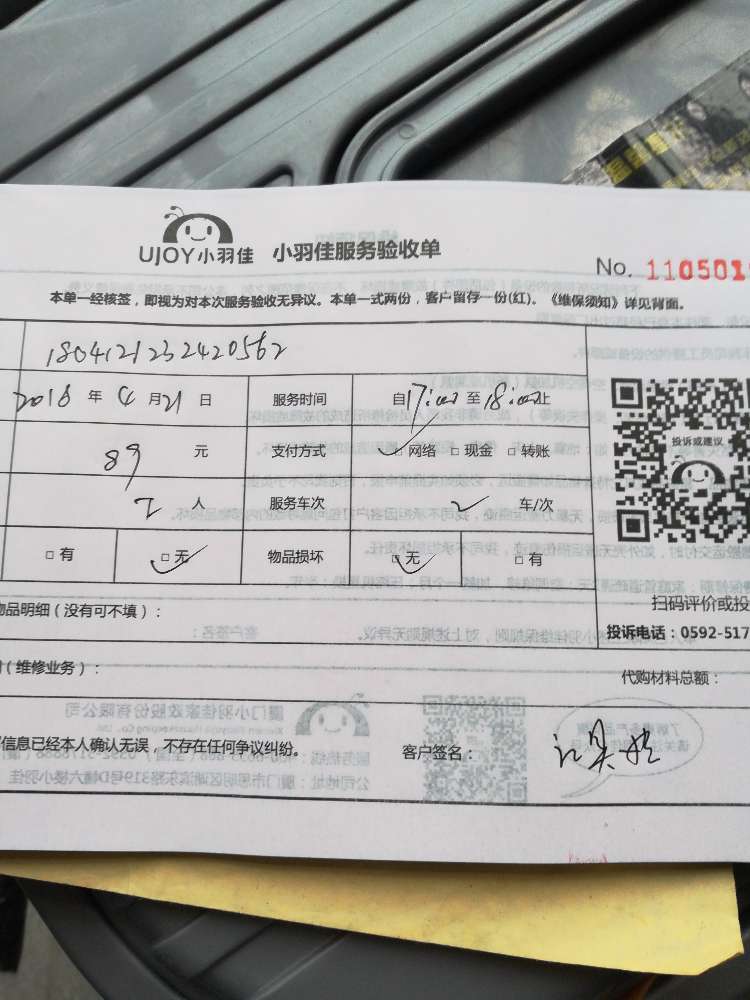 UJOY小羽佳 小羽佳服务验收单
No. 110501
本单一经核签，即视为对本次服务验收无异议。本单一式两份，客户留存一份(红)。《维保须知》详见背面。
1804121232420562
2018 年 4 月 21 日 服务时间 自17:00至18:00止
89 元 支付方式 网络 □ 现金 □ 转账
2 人 服务车次 2 车/次
□ 有 □ 无 物品损坏 □ 无 □ 有
投诉或建议
扫码评价或投
物品明细（没有可不填）：
投诉电话：0592-517
（维修业务）：
代购材料总额：
信息已经本人确认无误，不存在任何争议纠纷。 客户签名：